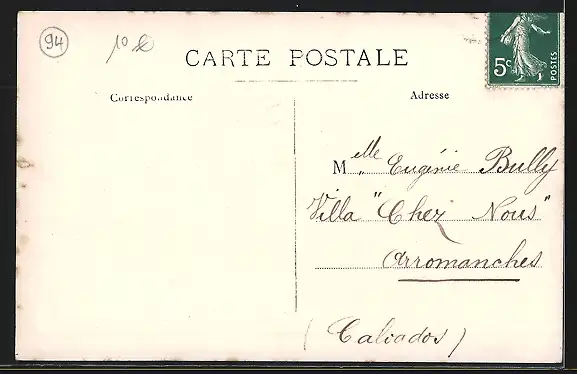 94
10 €
CARTE POSTALE
5c
POSTES
Correspondance
Adresse
Melle Eugénie Bully
Villa "Chez Nous"
Arromanches
(Caliados)